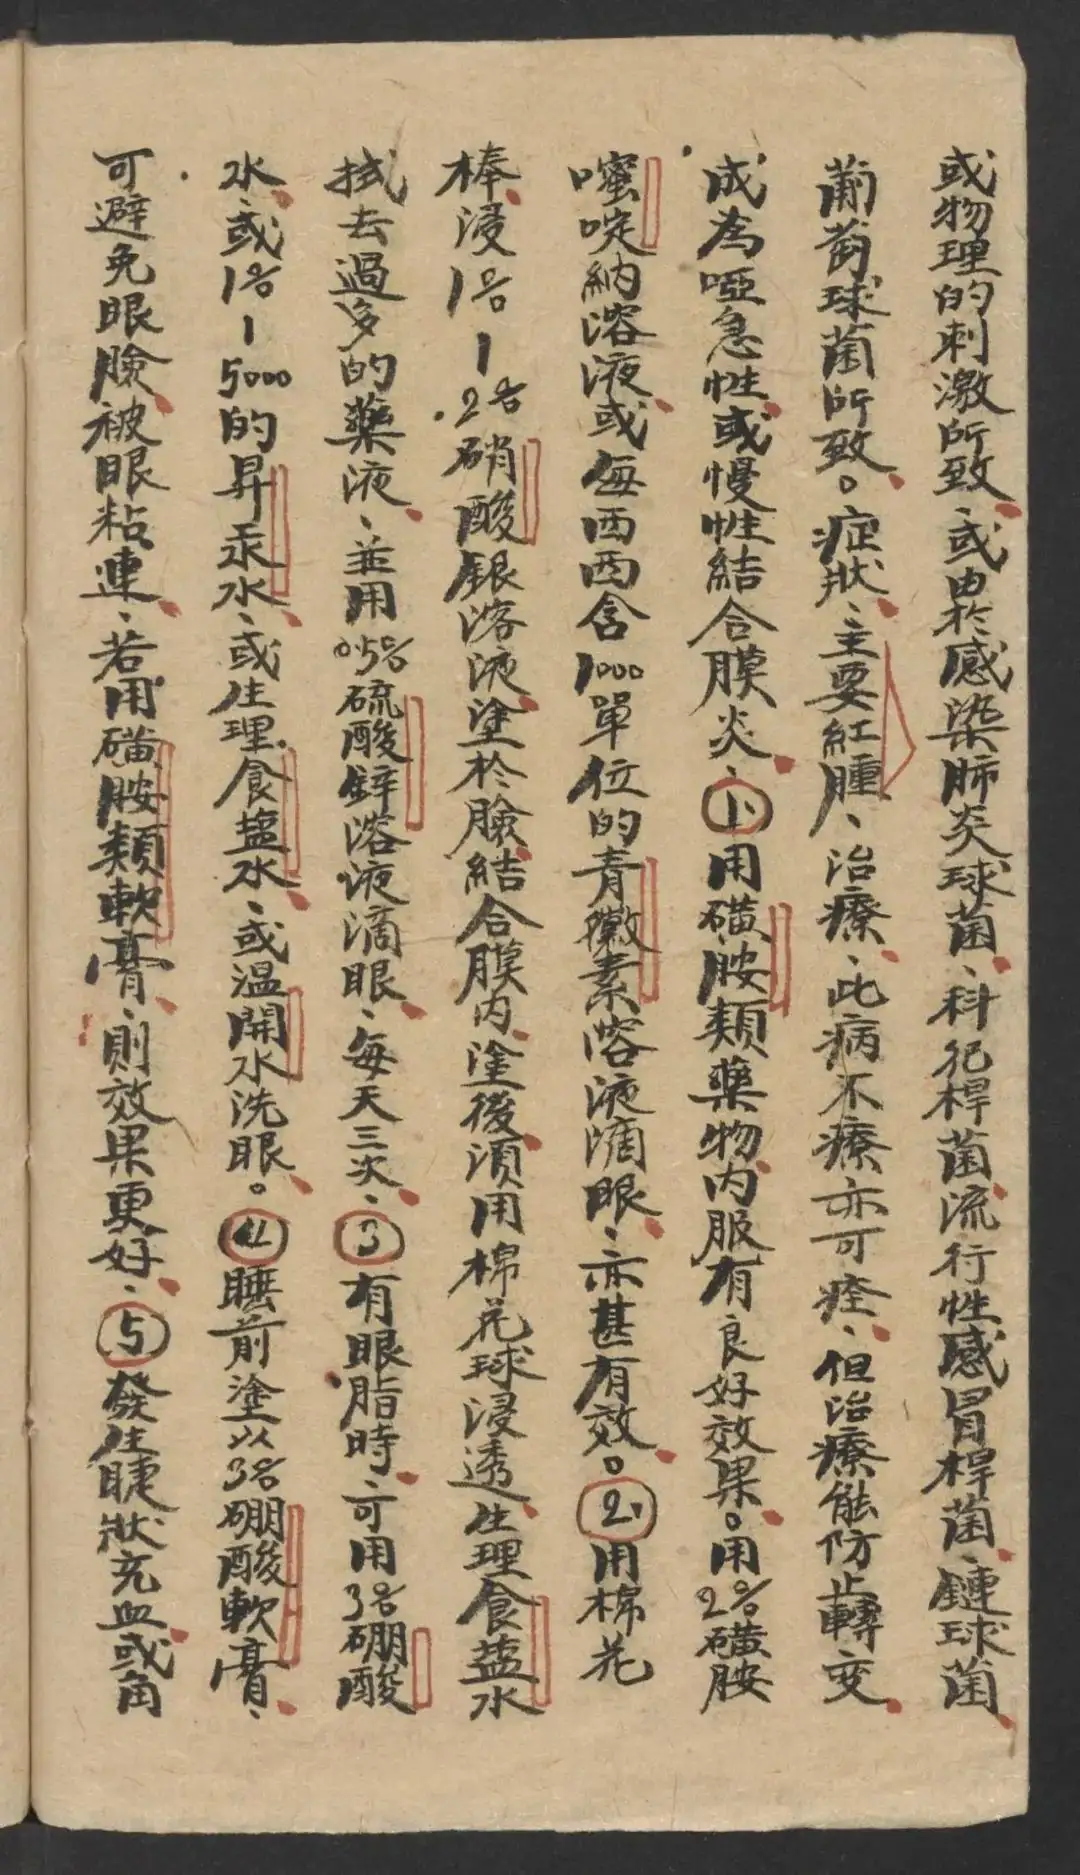 或物理的刺激所致、或由於感染肺炎球菌、科氏桿菌流行性感冒桿菌、鏈球菌
葡萄球菌所致。症狀、主要紅腫、治療、此病不療亦可痊、但治療能防止轉变
成為啞急性、或慢性結合膜炎、1、用磺胺類藥物内服有良好效果。用2%磺胺
嘧啶納溶液或每西西含1000單位的青黴素溶液滴眼、亦甚有效。2、用棉花
棒浸1%—2%硝酸銀溶液塗於臉結合膜内、塗後須用棉花球浸透生理食盐水
拭去過多的藥液、並用0.5%硫酸鋅溶液滴眼、每天三次、3有眼脂時、可用3%硼酸
水、或1%—5000的昇汞水、或生理食盐水、或溫開水洗眼。4睡前塗以3%硼酸軟膏、
可避免眼臉被眼粘連、若用磺胺類軟膏、則效果更好、5發生睫狀充血或角